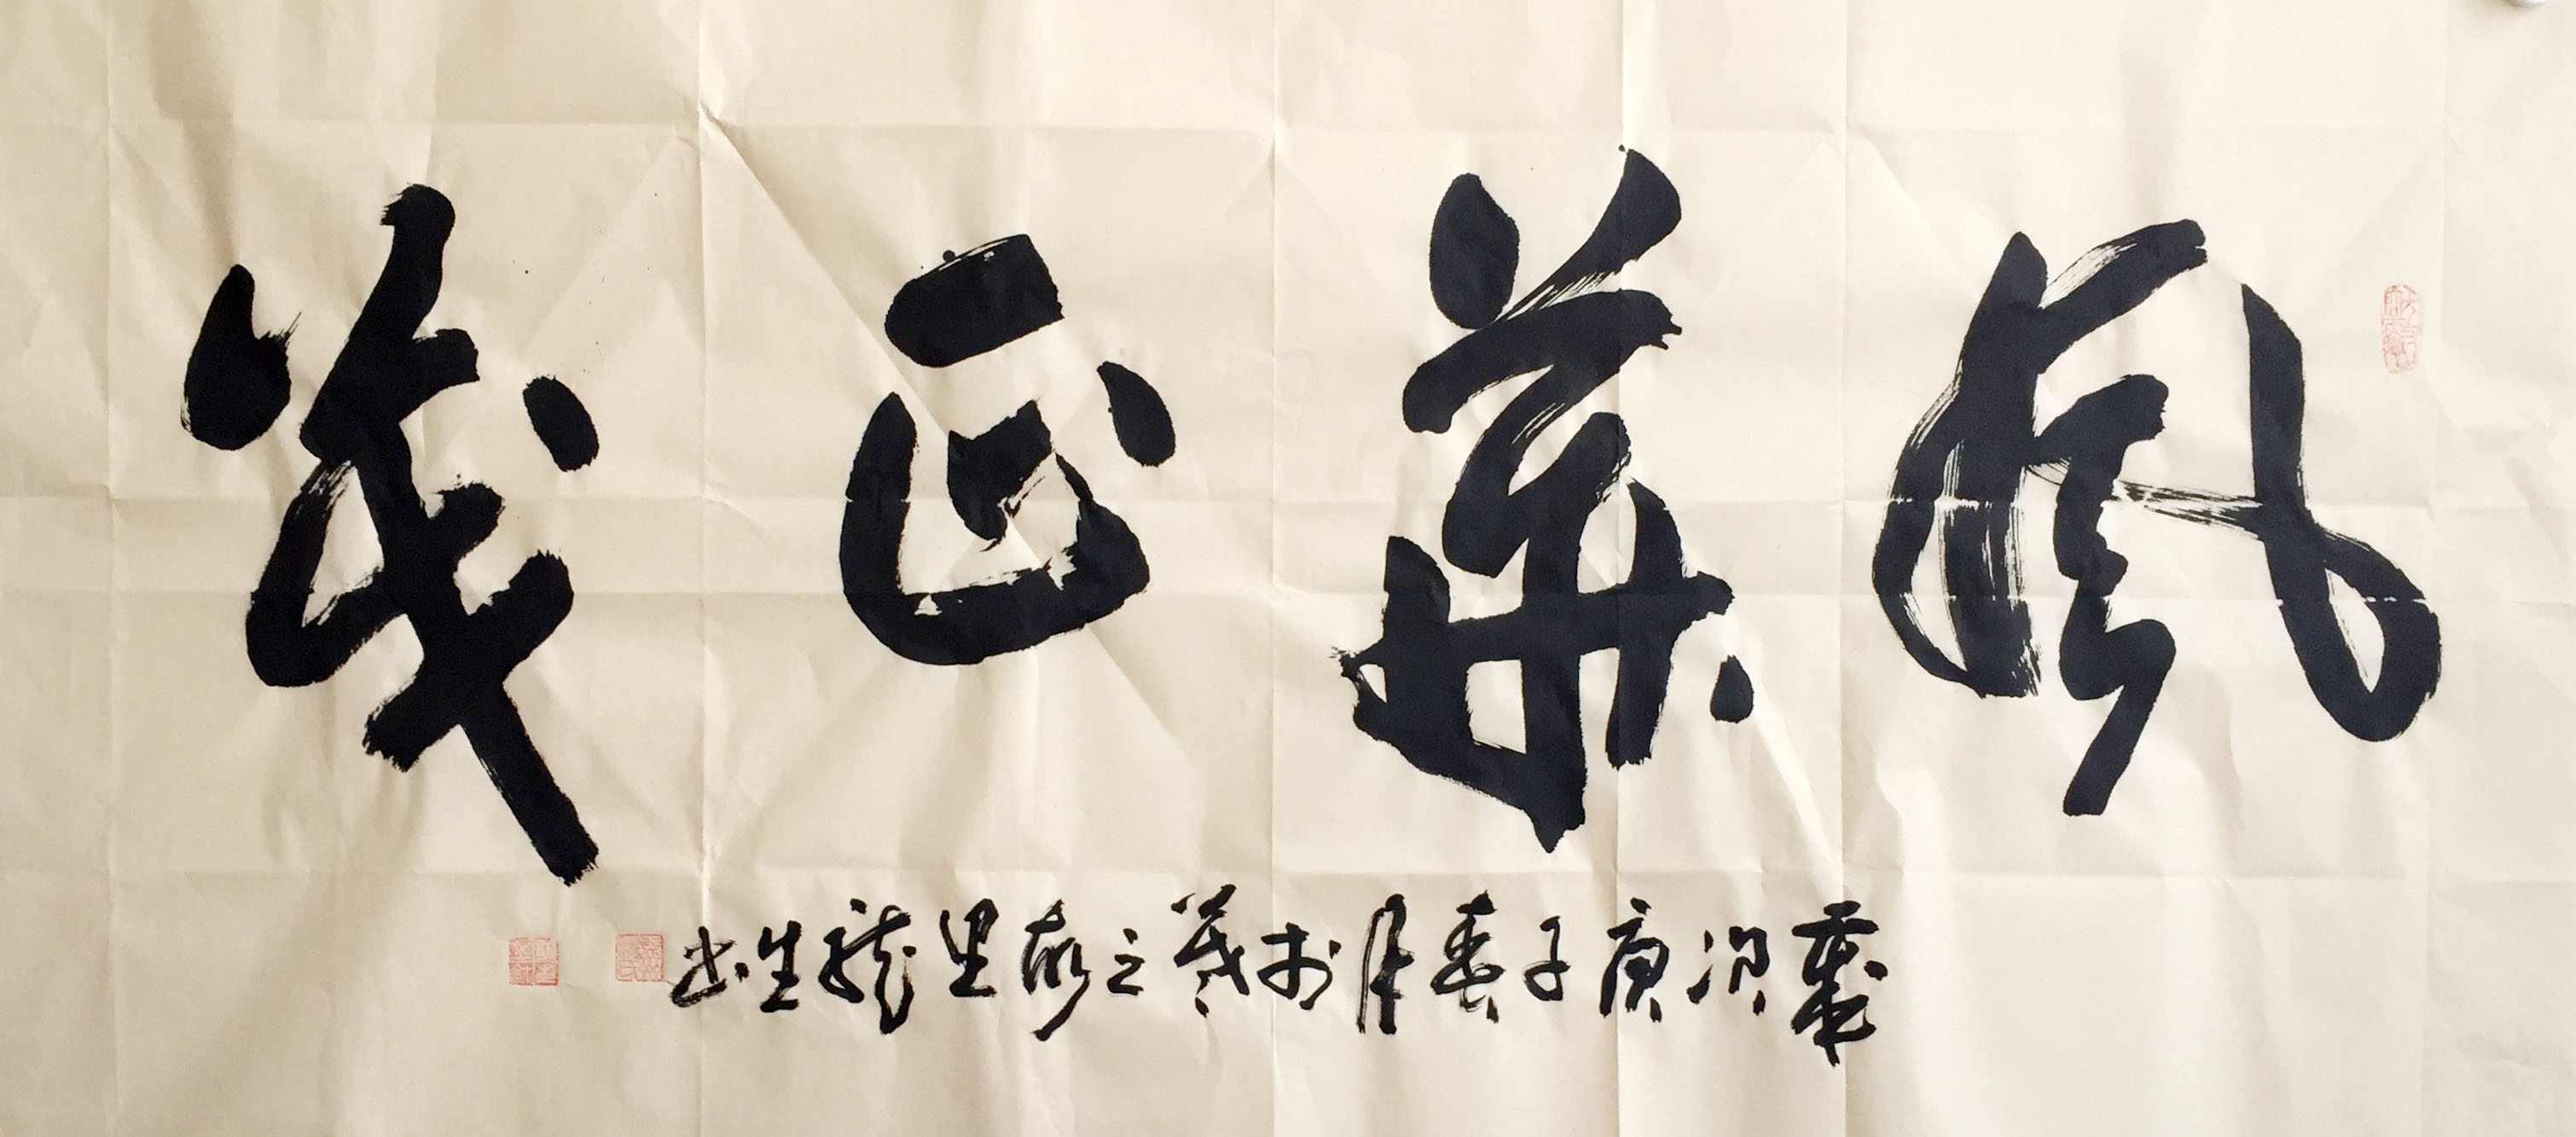 風華正茂
歲次庚子春月於羲之故里龍生書